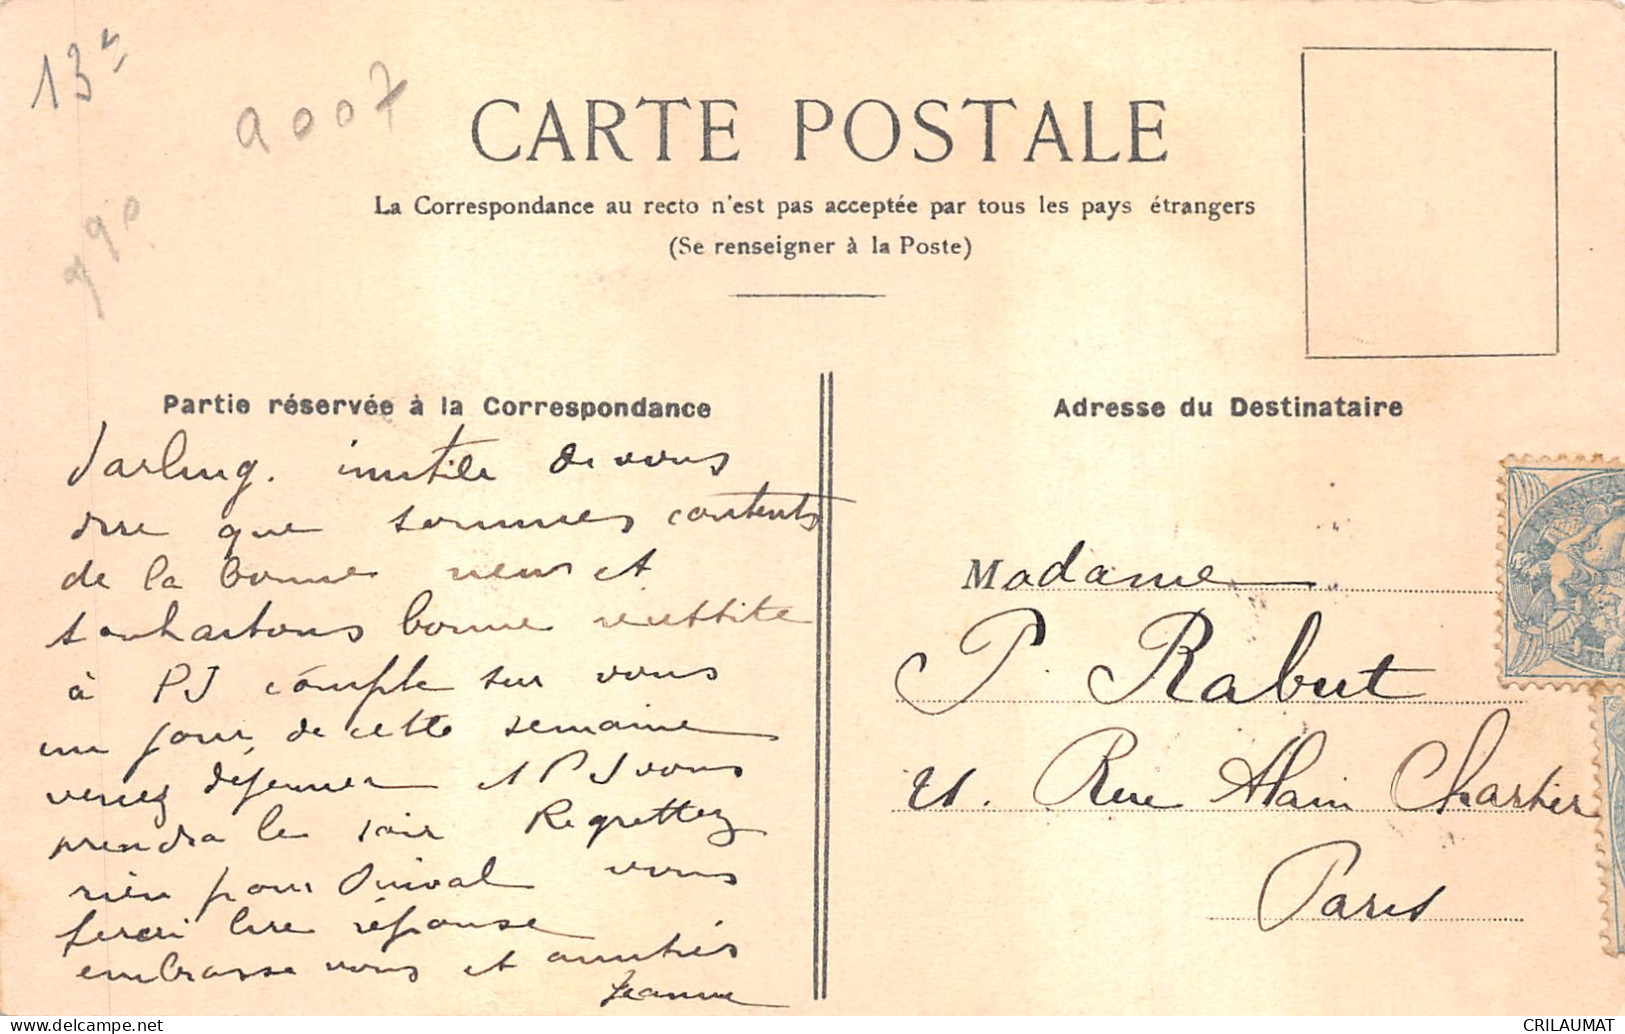 13e
9007
90
CARTE POSTALE
La Correspondance au recto n'est pas acceptée par tous les pays étrangers
(Se renseigner à la Poste)
Partie réservée à la Correspondance
Darling. inutile de vous
dire que sommes contents
de la bonne news et
souhaitons bonne réussite
à PJ compte sur vous
un jour de cette semaine
venez déjeuner et PJ vous
prendra le soir Regrettez
rien pour Duival vous
ferai lire réponse
embrasse vous et amitiés
Jeanne
Adresse du Destinataire
Madame
P. Rabut
21. Rue Alain Chartier
Paris
CRILAUMAT